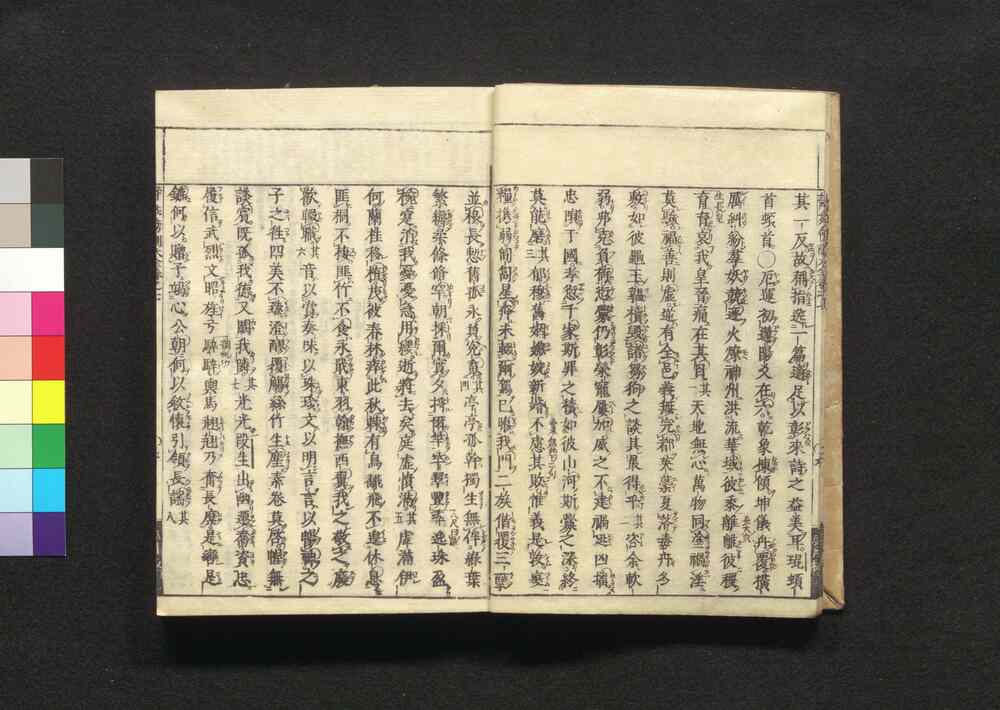 其一反故稱指送一篇適足以彰來詩之益美耳琨頓
首頓首○厄運初遘陽爻在六乾象棟傾坤儀舟覆橫
厲糾紛羣妖競逐火燎神州洪流華域彼黍離離彼稷
育育哀我皇晉痛在其目其一天地無心萬物同塗禍淫
莫驗福善則虛逆有全邑義無完都英蘂夏落毒卉冬
敷如彼龜玉韞櫝毀諸芻狗之談其最得乎二咨余軟
弱弗克負荷愆釁仍彰榮寵屢加威之不建禍延凶播
忠隕于國孝愆于家斯罪之積如彼山河斯釁之深終
莫能磨三郁穆舊姻嬿婉新婚不慮其敗惟義是敦裹
糧攜弱匍匐星奔未輟爾駕已隳我門二族偕覆三孽
並根長慙舊孤永負冤魂其四亭亭孤幹獨生無伴綠葉
繁縟柔條脩罕朝採爾實夕捋爾竿竿翠豐尋逸珠盈
椀實消我憂憂急用緩逝將去矣庭虛情滿其五虛滿伊
何蘭桂移植茂彼春林瘁此秋棘有鳥翻飛不遑休息
匪桐不棲匪竹不食永戢東羽翰撫西翼我之敬之廢
歡輟職其六音以賞奏味以殊珍文以明言言以暢神之
子之往四美不臻澄醪覆觴絲竹生塵素卷莫啓幄無
談賓既孤我德又闕我隣其七光光段生出幽遷喬資忠
履信武烈文昭旌弓騂騂輿馬翹翹乃奮長縻是轡是
鑣何以贈子竭心公朝何以敘懷引領長謠其八